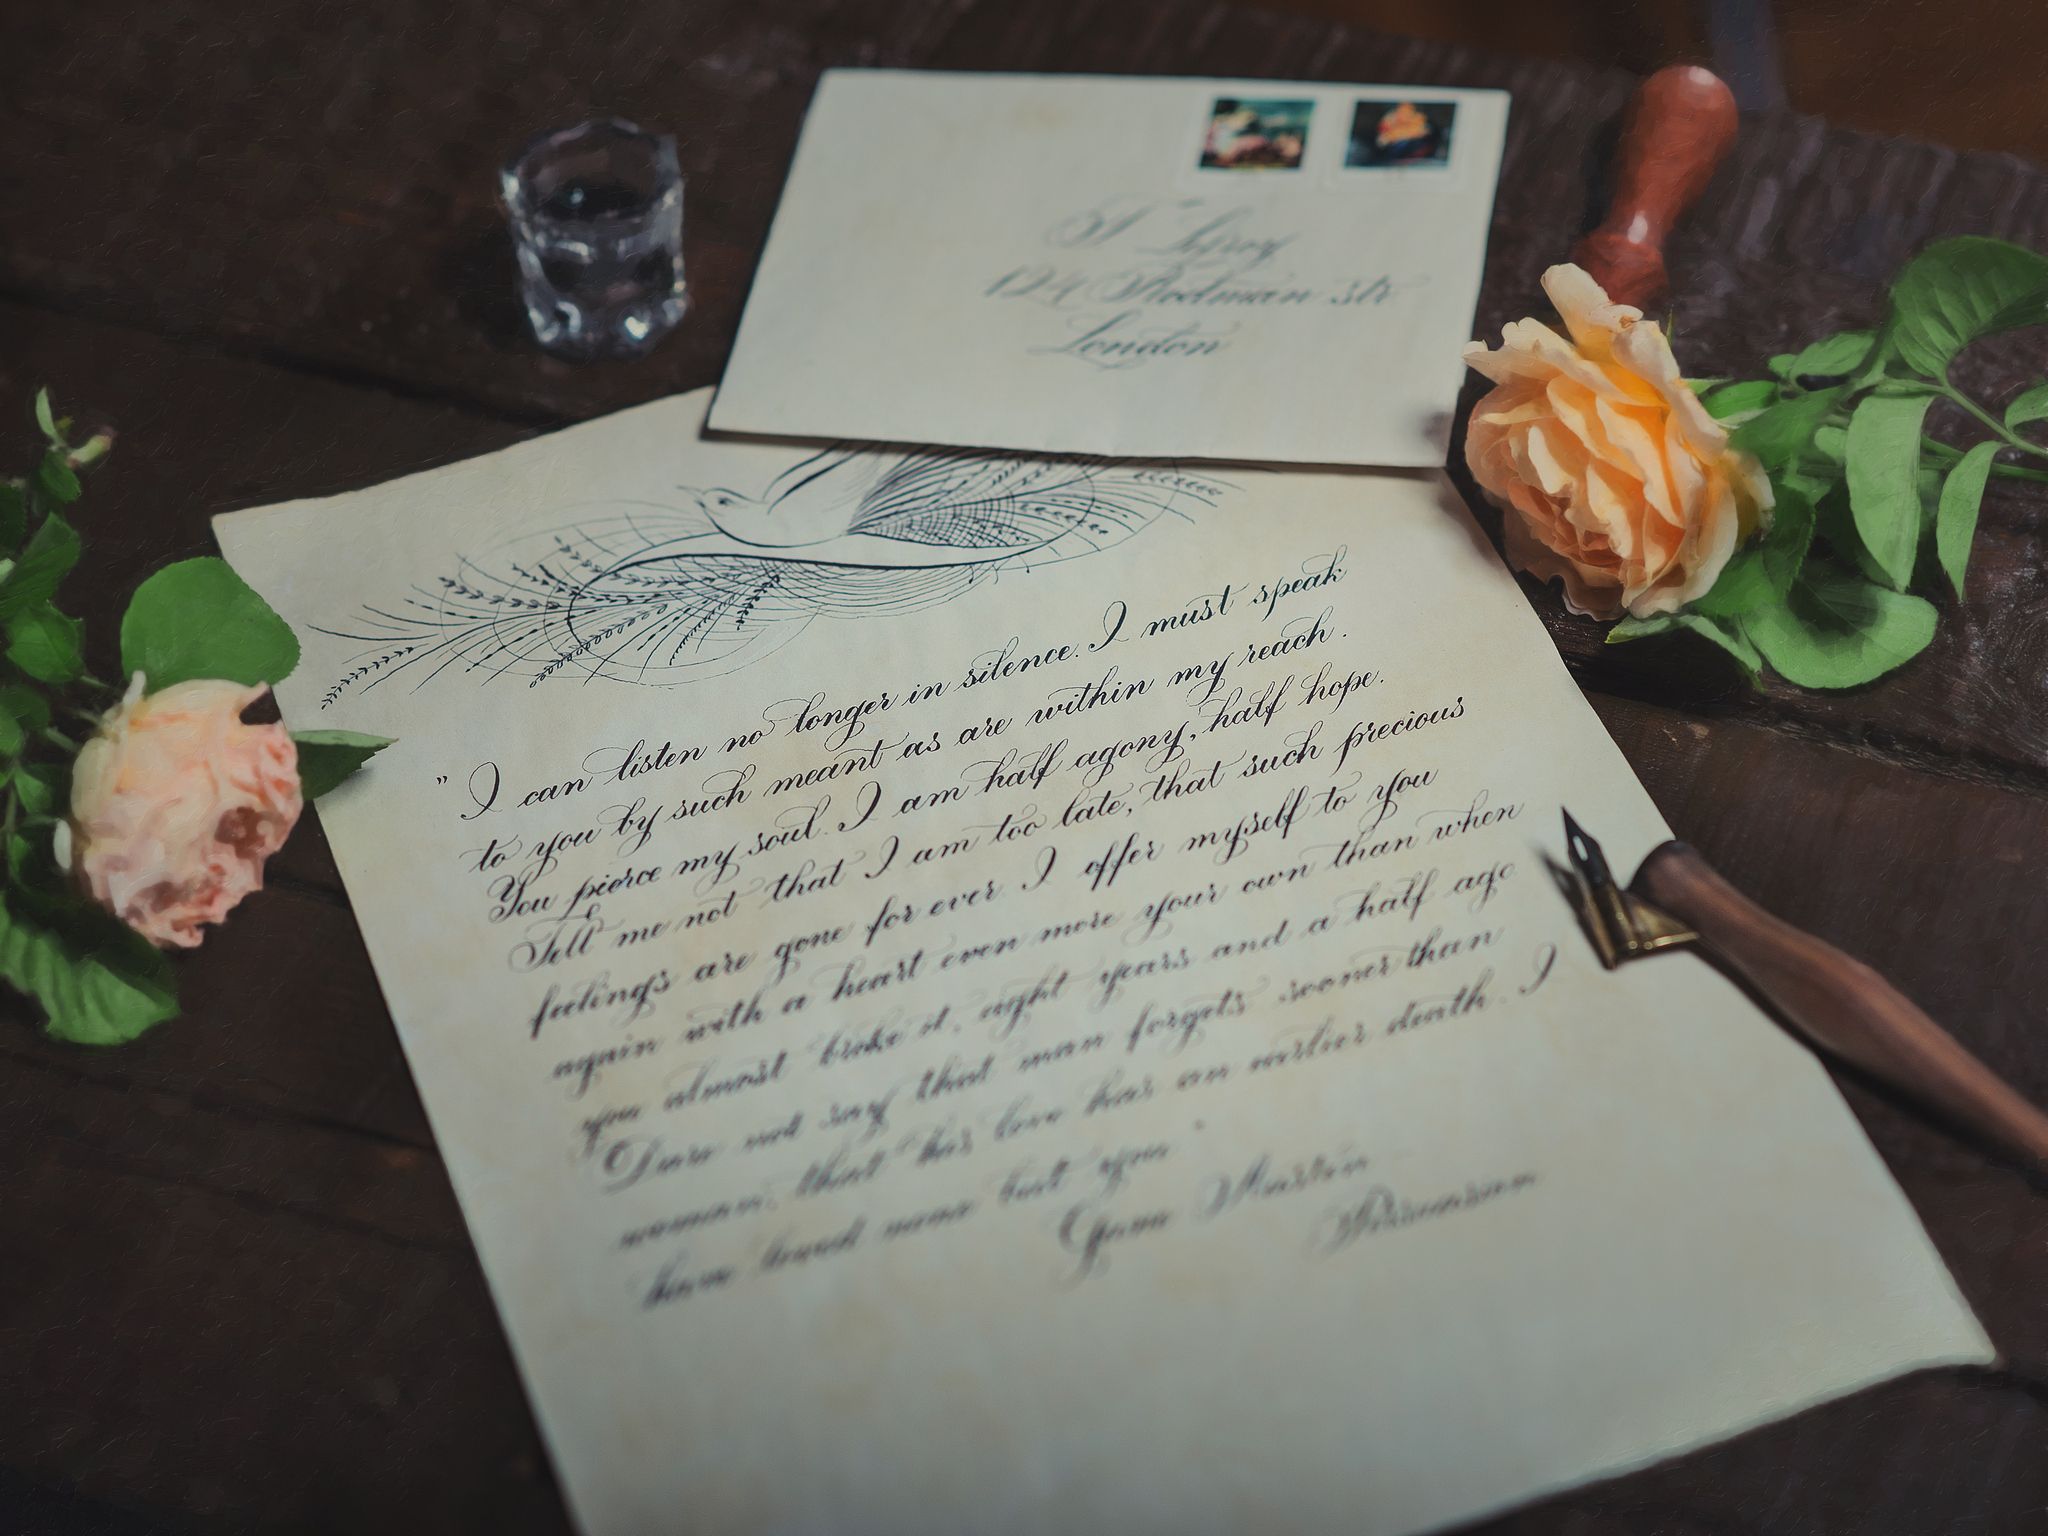 London
" I can listen no longer in silence. I must speak
to you by such meant as are within my reach.
You pierce my soul. I am half agony, half hope.
Tell me not that I am too late, that such precious
feelings are gone for ever. I offer myself to you
again with a heart even more your own than when
you almost broke it, eight years and a half ago
Dare not say that man forgets sooner than
woman, that his love has an earlier death. I
have loved none but you "
Jane Austin
Persuasion